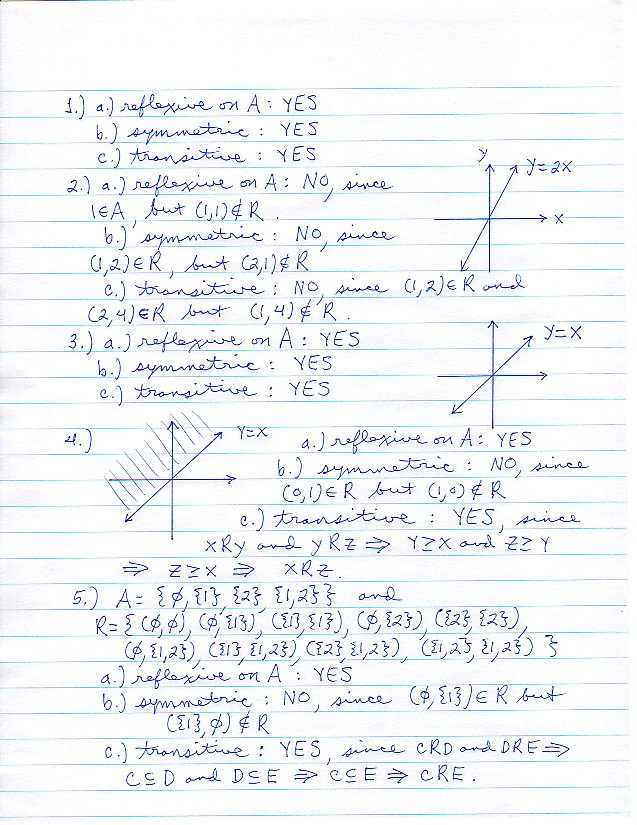 1.) a.) reflexive on A : YES
b.) symmetric : YES
c.) transitive : YES
2.) a.) reflexive on A : NO, since
1∈A, but (1,1)∉R.
b.) symmetric : NO, since
(1,2)∈R, but (2,1)∉R
c.) transitive : NO, since (1,2)∈R and
(2,4)∈R but (1,4)∉R.
y
y=2x
x
3.) a.) reflexive on A : YES
b.) symmetric : YES
c.) transitive : YES
y=x
4.)
y=x
a.) reflexive on A : YES
b.) symmetric : NO, since
(0,1)∈R but (1,0)∉R
c.) transitive : YES, since
xRy and yRz ⇒ y≥x and z≥y
⇒ z≥x ⇒ xRz.
5.) A = {∅, {1}, {2}, {1,2}} and
R = { (∅,∅), (∅,{1}), ({1},{1}), (∅,{2}), ({2},{2}),
(∅,{1,2}), ({1},{1,2}), ({2},{1,2}), ({1,2},{1,2}) }
a.) reflexive on A : YES
b.) symmetric : NO, since (∅,{1})∈R but
({1},∅)∉R
c.) transitive : YES, since CRD and DRE ⇒
C⊆D and D⊆E ⇒ C⊆E ⇒ CRE.